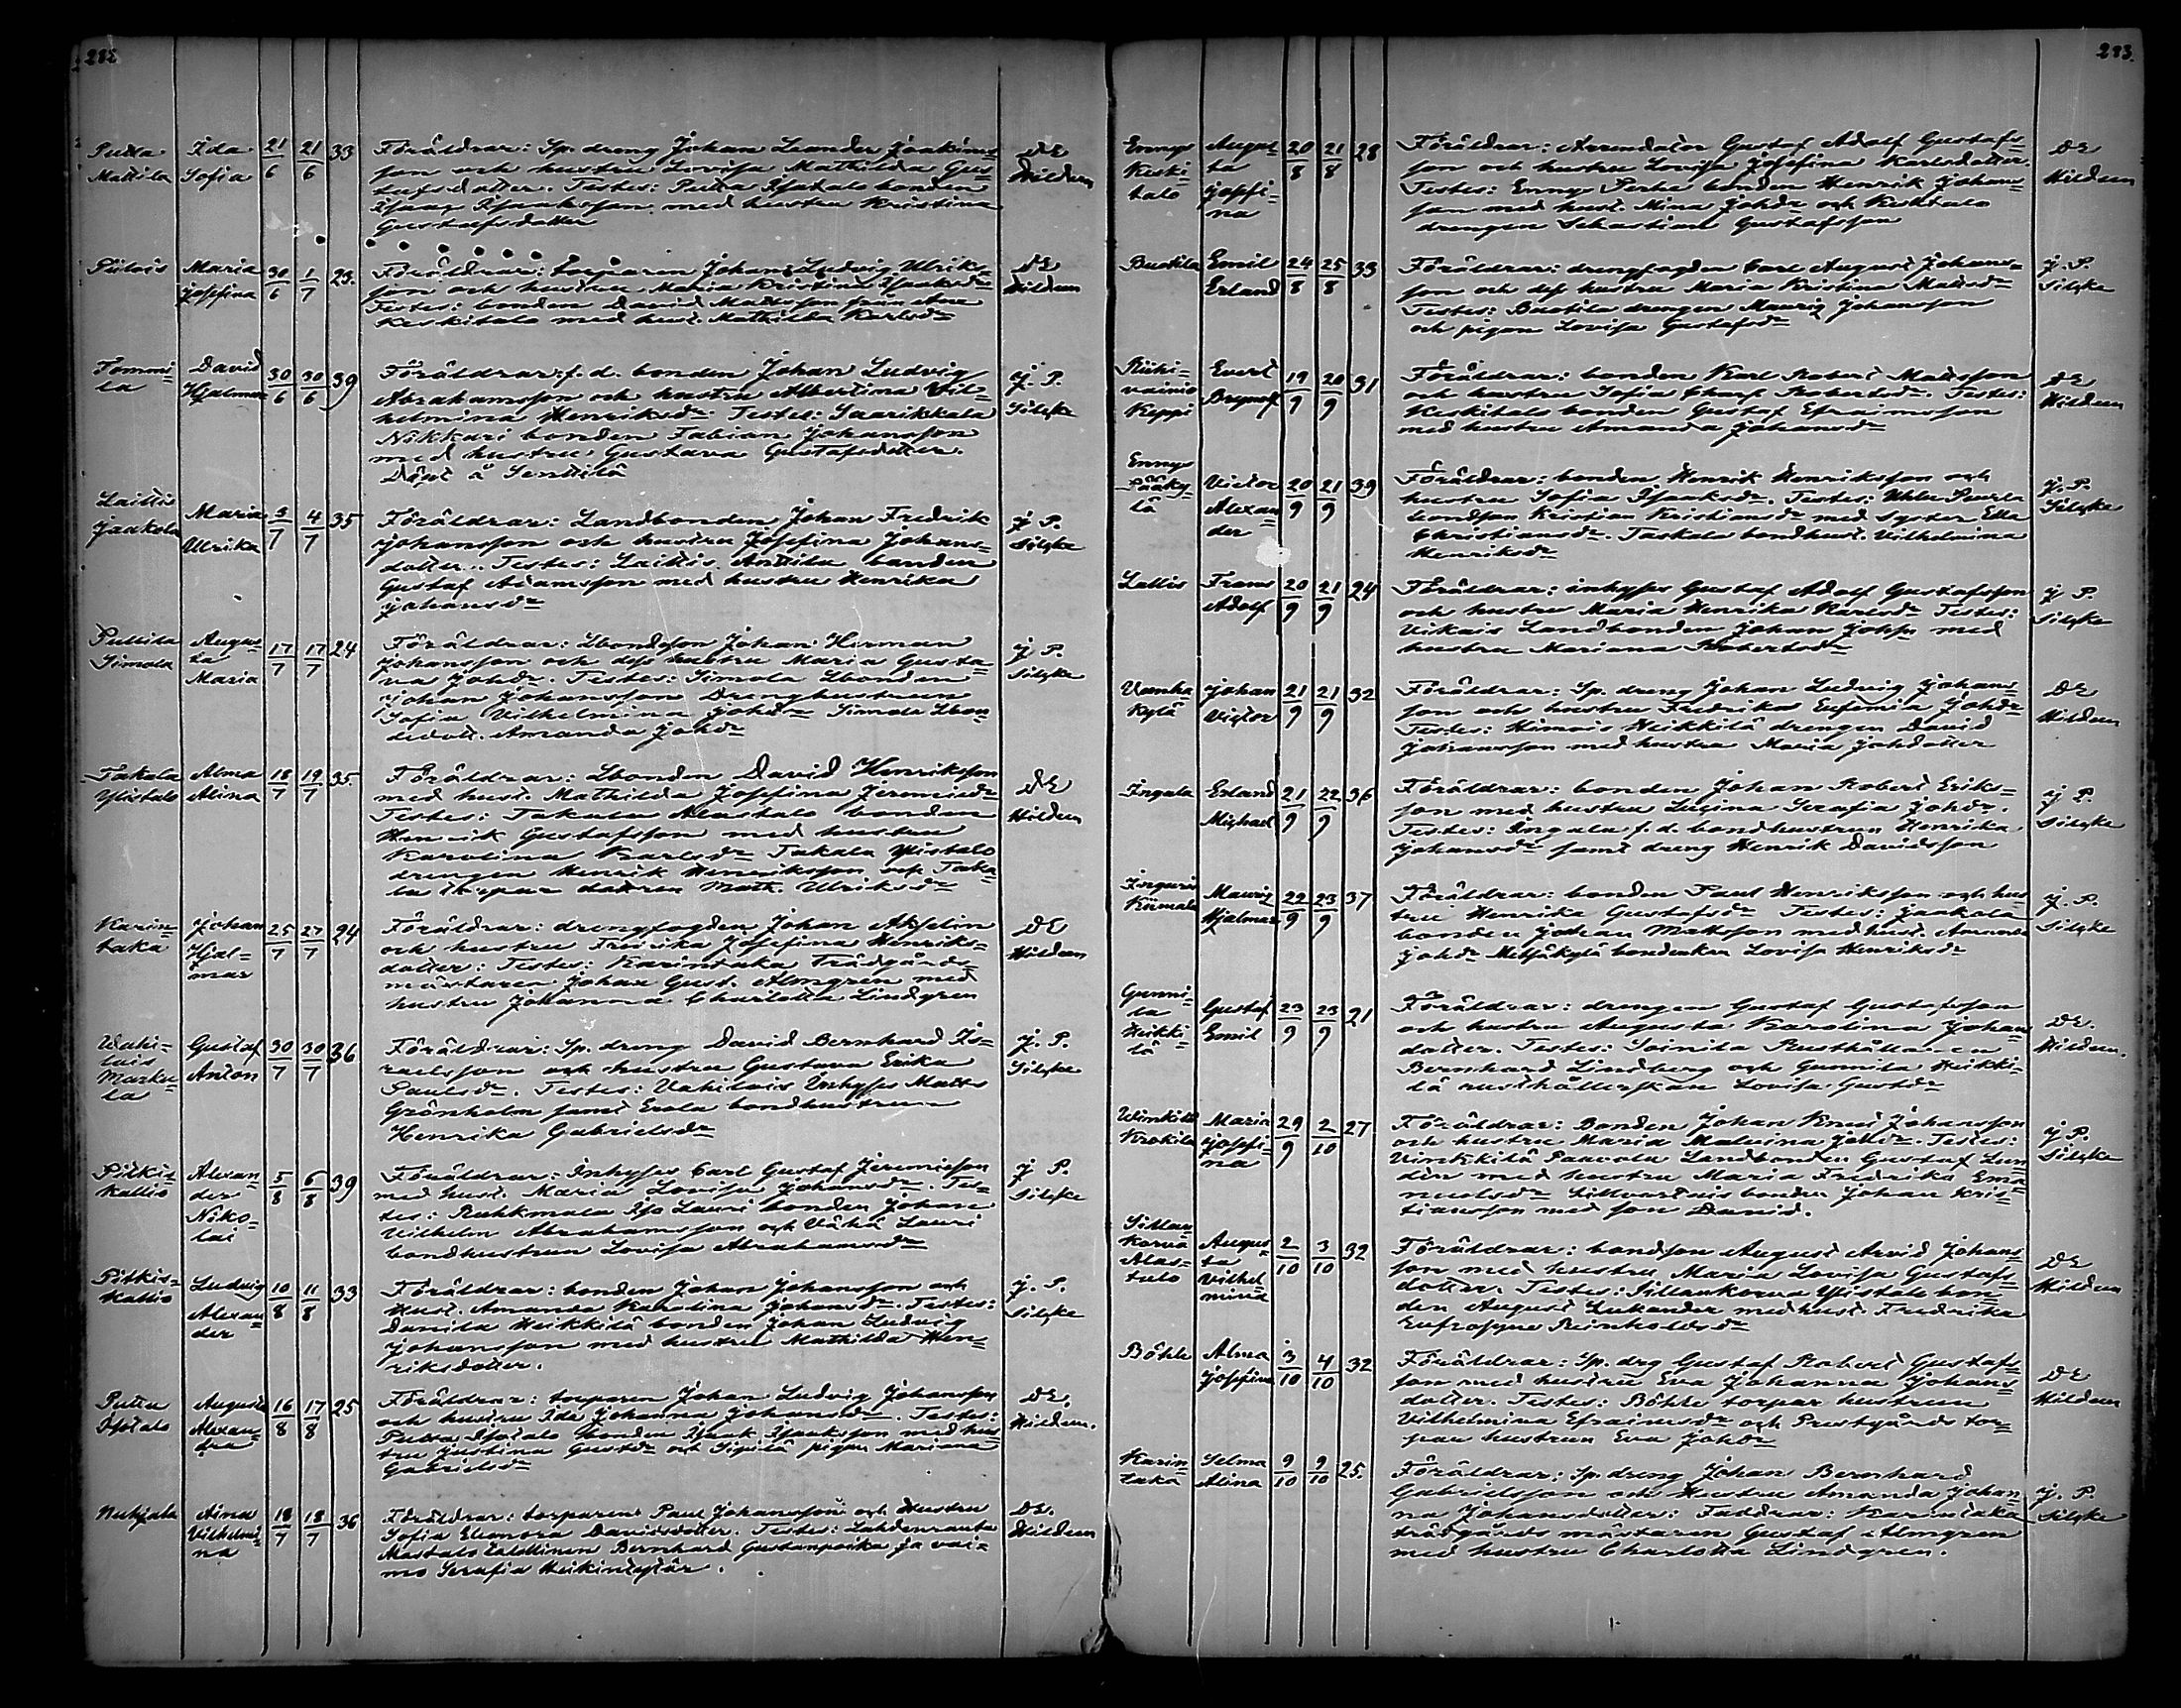 282
Putta Mattila
Ida Sofia
21/6 21/6 33
Föräldrar: Sp. dreng Johan Leander Joakims=
son och hustru Lovisa Mathilda Gus=
tafsdotter. Testes: Putta Isotalo bonden
Isaac Isaaksson med hustru Kristina
Gustafsdotter
DE Hildeen
Piilois
Maria Josefina
30/6 1/7 23.
Föräldrar: torparen Johan Ludvig Ulriks=
son och hustru Maria Kristina Isaaksdr
Testes: bonden David Mattsson från
Keskitalo med hust. Mathilda Karlsdr
DE Hildeen
Tommi=
la
David Hjalmar
30/6 30/6 39
Föräldrar: f. d. bonden Johan Ludvig
Abrahamsson och hustru Albertina Vil=
helmina Henriksdr Testes: Saarikkala
Nikkari bonden Fabian Johansson
med hustru Gustava Gustafsdotter.
Döpt å Senttilä
J. P. Silcke
Laitis
Jaakola
Maria Ulrika
3/7 4/7 35
Föräldrar: Landbonden Johan Fredrik
Johansson och hustru Josefina Johans=
dotter. Testes: Laitis Anttila bonden
Gustaf Adamsson med hustru Henrika
Johansdr
J. P. Silcke
Puttila
Simola
Augus=
ta
Maria
17/7 17/7 24
Föräldrar: Lbondson Johan Herman
Johansson och dess hustru Maria Gusta=
va Johdr. Testes: Simola Lbonden
Johan Johansson Drenghustrun
Sofia Vilhelmina Johdr Simola Lbon=
dedott. Amanda Johdr
J. P. Silcke
Takala
Ylistalo
Alma Alina
18/7 19/7 35.
Föräldrar: Lbonden David Henriksson
med hust. Mathilda Josefina Jeremiedr
Testes: Takala Alastalo bonden
Henrik Gustafsson med hustru
Karolina Karlsdr Takala Ylistalo
drengen Henrik Henriksson och Taka=
la torpar dottren Math. Ulriksdr
DE Hildeen
Karin=
taka
Johan
Hjal=
mar
25/7 27/7 24
Föräldrar: drengfogden Johan Akselin
och hustru Fredrika Josefina Henriks=
dotter: Testes: Karintaka Trädgårds=
mästaren Johan Gust. Almgren med
hustru Johanna Charlotta Lindgren
DE Hildeen
Vahi=
lais
Marku=
la
Gustaf Anton
30/7 30/7 36
Föräldrar: Sp. dreng David Bernhard Is=
raelsson och hustru Gustava Erika
Paulsdr. Testes: Vahilais Inhyses Matts
Grönholm samt Erola bondhustrun
Henrika Gabrielsdr
J. P. Silcke
Pitkis=
kallio
Alexan=
der
Niko=
lai
5/8 6/8 39
Föräldrar: Inhyses Carl Gustaf Jeremiesson
med hust. Maria Lovisa Johansdr. Tes=
tes: Ruhkmala Iso Lauri bonden Johan
Vilhelm Abrahamsson och Vähä Lauri
bondhustrun Lovisa Abrahamsdr
J. P. Silcke
Pitkis=
kallio
Ludvig
Alexan=
der
10/8 11/8 33
Föräldrar: bonden Johan Johansson och
Hust. Amanda Karolina Johansdr. Testes:
Danila Heikkilä bonden Johan Ludvig
Johansson med hustru Mathilda Hen=
riksdotter.
J. P. Silcke
Putta
Isotalo
August
Alexan=
dra
16/8 17/8 25
Föräldrar: torparen Johan Ludvig Johansson
och hustru Ida Johanna Johansdr. Testes:
Putta Isotalo bonden Isaak Isaksson med hus=
tru Justina Gustdr och Sipilä pigan Mariana
Gabrielsdr
DE. Hildeen.
Nuhjala
Aina
Vilhelmi=
na
18/7 18/7 36
Föräldrar: torparen Paul Johansson och Hustru
Sofia Eleonora Davidsdotter. Testes: Lahdenranta
Alastalo talollinen Bernhard Gustanpoika ja vai=
mo Serafia Heikintytär.
DE. Hildeen
283.
Ennys
Keski=
talo
Augus=
ta
Josefi=
na
20/8 21/8 28
Föräldrar: Arrendator Gustaf Adolf Gustafs=
son och hustru Lovisa Josefina Karlsdotter.
Testes: Ennys Perhe bonden Henrik Johans=
son med hust. Mina Johdr och Keskitalo
drengen Sebastian Gustafsson
DE Hildeen
Bustila
Emil Erland
24/8 25/8 33
Föräldrar: drengfogden Carl August Johans=
son och dess hustru Maria Kristina Mattsdr
Testes: Bustila drengen Mauriz Johansson
och pigan Lovisa Gustafsdr
J. P. Silcke
Riihi=
vainio
Keppi
Evert Brynolf
19/9 20/9 31
Föräldrar: bonden Karl Robert Mattsson
och hustru Sofia Robertsdr. Testes:
Keskitalo bonden Gustaf Efraimsson
med hustru Amanda Johansdr
DE Hildeen
Ennys
Pääky=
lä
Victor
Alexan=
der
20/9 21/9 39
Föräldrar: bonden Henrik Henriksson och
hustru Sofia Isaaksdr. Testes: Uhlu Seurla
bondson Kristian Kristiansdr med syster Edla
Christiansdr. Taskala bondhust. Vilhelmina
Henriksdr
J. P. Silcke
Lallis
Frans Adolf
20/9 21/9 24
Föräldrar: inhyses Gustaf Adolf Gustafsson
och hustru Maria Henrika Karlsdr Testes:
Vikais Landbonden Johan Johss med
hustru Mariana Robertsdr
J. P. Silcke
Vanha
kylä
Johan Victor
21/9 21/9 32
Föräldrar: Sp. dreng Johan Ludvig Johans=
son och hustru Fredrika Eufemia Johdr
Testes: Himois Heikkilä drengen David
Johansson med hustru Maria Johdotter
DE Hildeen
Ingala
Erland Michael
21/9 22/9 36
Föräldrar: bonden Johan Robert Eriks=
son med hustru Lucina Serafia Johdr.
Testes: Ingala f. d. bondhustrun Henrika
Johansdr samt dreng Henrik Davidsson
J. P. Silcke
Inguris
Körmala
Mauriz Hjalmar
22/9 23/9 37
Föräldrar: bonden Paul Henriksson och hus
tru Henrika Gustafsdr Testes: Jaakola
bonden Johan Mattsson med hust. Amanda
Johdr Metsäkylä bondenkan Lovisa Henriksdr
J. P. Silcke
Gunni=
la
Heikki=
lä
Gustaf Emil
23/9 23/9 21
Föräldrar: drengen Gustaf Gustafsson
och hustru Augusta Karolina Johan=
dotter. Testes: Soinila Rusthållaren
Bernhard Lindberg och Gunnila Heikki=
lä rusthållerskan Lovisa Gustdr
DE. Hildeen.
Vinkkilä
Krokila
Maria
Josefi=
na
29/9 2/10 27
Föräldrar: Bonden Johan Knut Johansson
och hustru Maria Malvina Johdr. Testes:
Vinkkilä Paavola Landbonden Gustaf Lun
dén med hustru Maria Fredrika Ema=
nuelsdr bonden Johan Kris=
tiansson med son David.
J. P. Silcke
Sillan=
korva
Alas=
talo
Augus=
ta
Vilhel
mina
2/10 3/10 32
Föräldrar: bondson August Arvid Johans=
son med hustru Maria Lovisa Gustafs=
dotter. Testes: Sillankorva Ylistalo bon=
den August Lukander med hust Fredrika
Eufrosyne Reinholdsdr
DE Hildeen
Böhle
Alma Josefina
3/10 4/10 32
Föräldrar: Sp. drg Gustaf Robert Gustafs=
son med hustru Eva Johanna Johans=
dotter. Testes: Böhle torpar hustrun
Vilhelmina Efraimsdr och Prestgårds tor=
par hustrun Eva Johdr
DE Hildeen
Karin=
taka
Selma Alina
9/10 9/10 25.
Föräldrar: Sp. dreng Johan Bernhard
Gabrielsson och Hustru Amanda Johan=
na Johansdotter: Faddrar: Karintaka
trädgårds mästaren Gustaf Almgren
med hustru Charlotta Lindgren.
J. P. Silcke